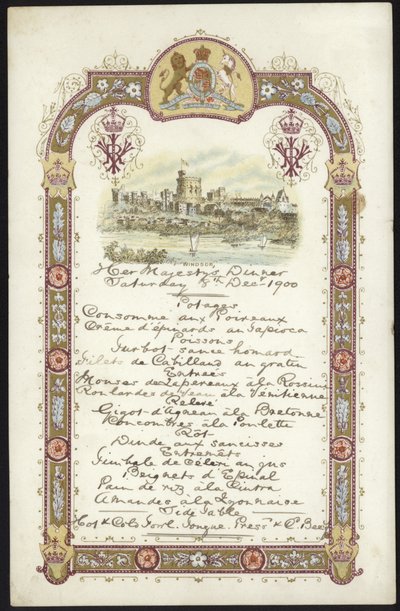 WINDSOR
Her Majestys Dinner
Saturday 8th Decr 1900
Potages
Consomme aux Poireaux
Crème d'épinards au Tapioca
Poissons
Turbot sauce homard
Filets de Cabillaud au gratin
Entrées
Mousses de Lapereaux à la Rossini
Roulardes de Veau à la Vénitienne
Relevé
Gigot d'agneau à la Bretonne
à la Poulette
Rôt
Dinde aux saucisses
Entremêts
Timbale de Céleri au jus
Beignets d'Epinal
Pain de riz à la
Amandes à la Lyonnaise
Side Table
Hot & Cold Fowl. Tongue. Press'd & C. Beef